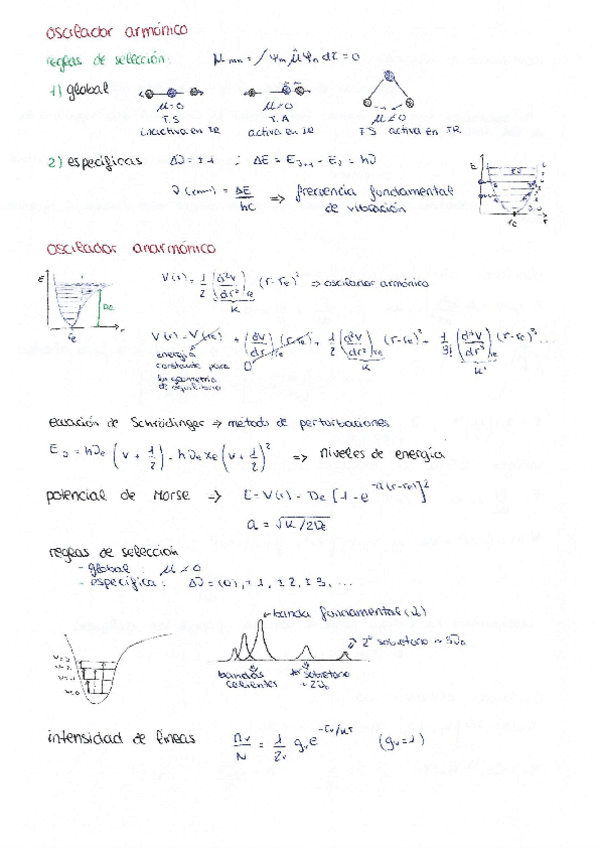 oscilador armónico
reglas de selección: μmn = ∫ Ψm μ̂ Ψn dτ = 0
1) global
μ=0 μ≠0 μ≠0
T.S T.A
inactiva en IR activa en IR T.S activa en IR
2) específicas Δυ = ±1 ; ΔE = Eυ+1 - Eυ = hυ
= ΔE/hc => frecuencia fundamental
de vibración
E
re r
oscilador anarmónico
E
De
re r
V(r) = 1/2 (d²V/dr²)re (r-re)² => oscilador armónico
K
V(r) = V(re) + (dV/dr)re (r-re) + 1/2 (d²V/dr²)re (r-re)² - 1/3! (d³V/dr³)re (r-re)³ ...
energía 0 K K'
constante para
la geometría
de equilibrio
ecuación de Schrödinger → método de perturbaciones
Eυ = hυe (v + 1/2) - hυe xe (v + 1/2)² => niveles de energía
potencial de Morse → E = V(r) = De [1 - e^-a(r-re)]²
a = √K/2De
reglas de selección
- global : μ ≠ 0
- específica : Δυ = (0), ±1, ±2, ±3, ...
banda fundamental
2º sobretono ≈ 3υ0
bandas
calientes
1er sobretono
≈ 2υ0
v=3
v=2
v=1
v=0
intensidad de líneas nv/N = 1/Zv gv e^-Ev/KT (gv=1)